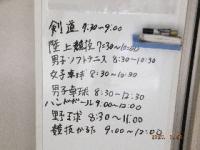 剣道 7:30~9:00
陸上競技 7:30~10:00
男子ソフトテニス 8:30~10:30
女子卓球 8:30~10:30
男子卓球 8:30~12:30
ハンドボール 9:00~12:00
野球 8:30~11:00
競技かるた 9:00~12:00